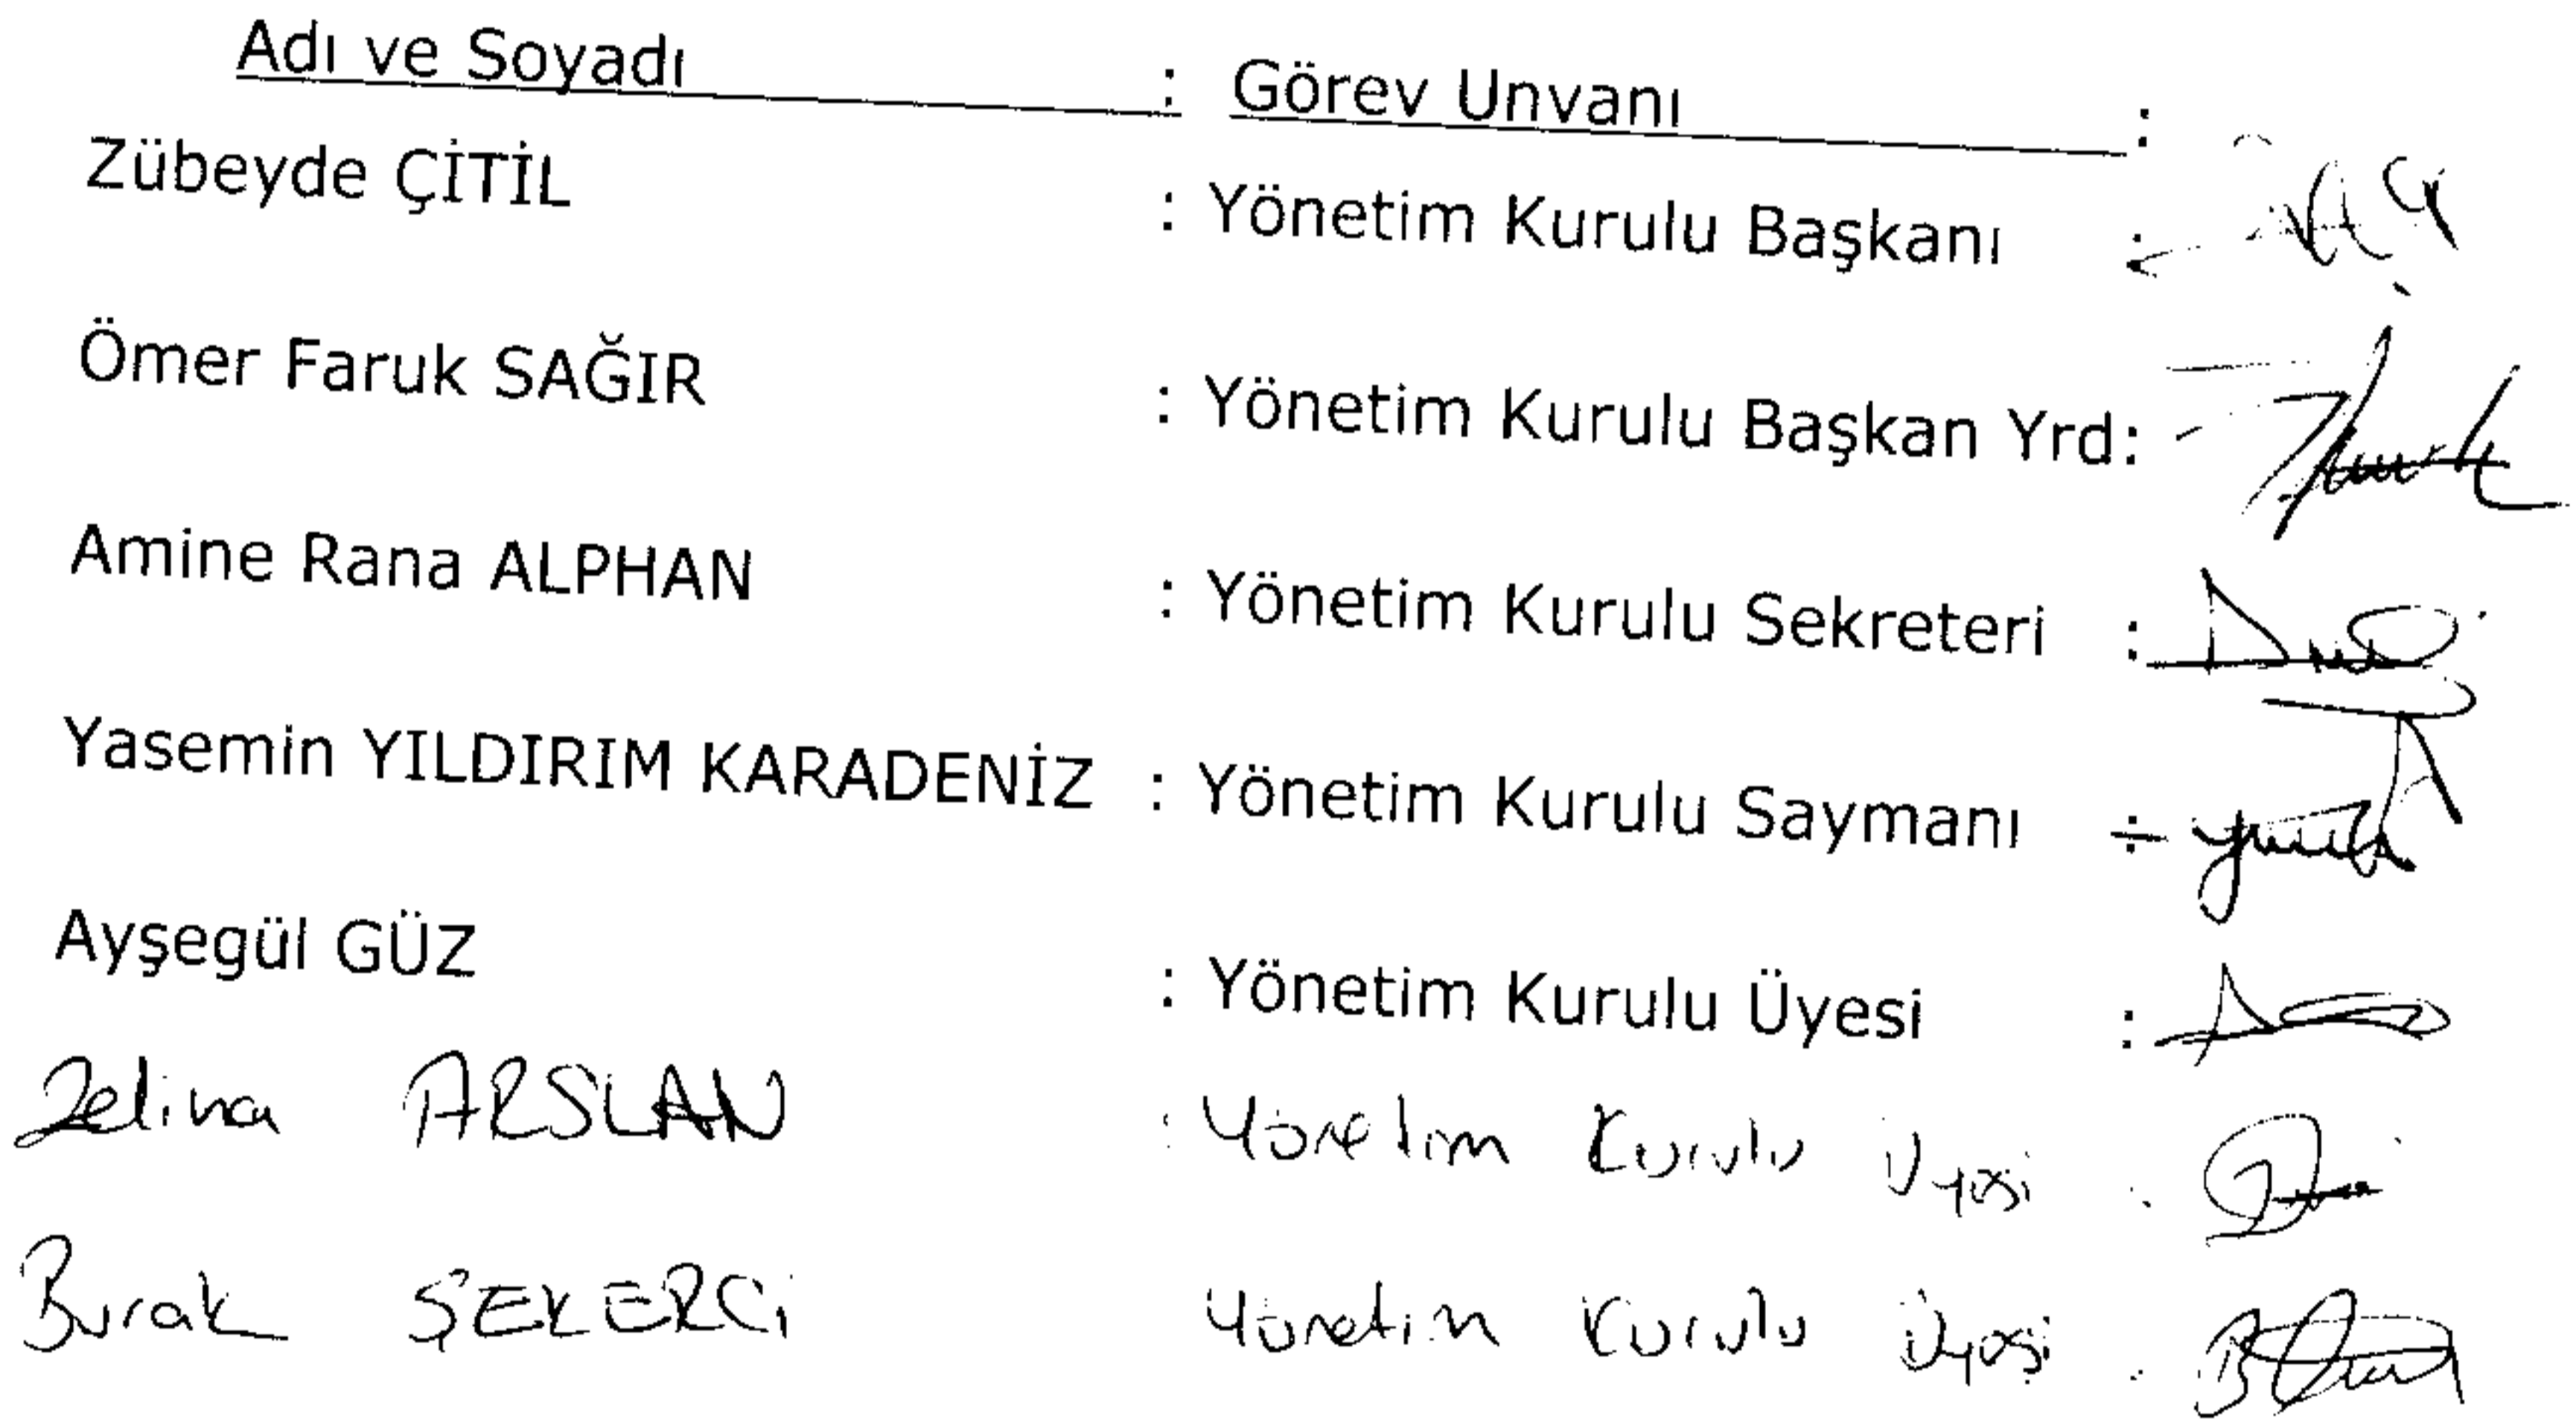 Adı ve Soyadı : Görev Unvanı :
Zübeyde ÇİTİL : Yönetim Kurulu Başkanı :
Ömer Faruk SAĞIR : Yönetim Kurulu Başkan Yrd:
Amine Rana ALPHAN : Yönetim Kurulu Sekreteri :
Yasemin YILDIRIM KARADENİZ : Yönetim Kurulu Saymanı :
Ayşegül GÜZ : Yönetim Kurulu Üyesi :
ARSLAN : Yönetim Kurulu Üyesi :
Burak ŞEKERCİ Yönetim Kurulu Üyesi :